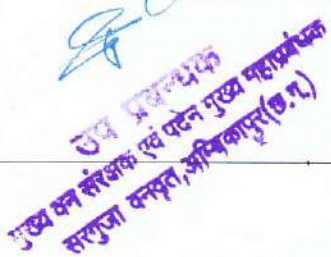 उप प्रबन्धक
मुख्य वन संरक्षक एवं पदेन मुख्य महाप्रबंधक
सरगुजा वनवृत्त, अम्बिकापुर(छ.ग.)